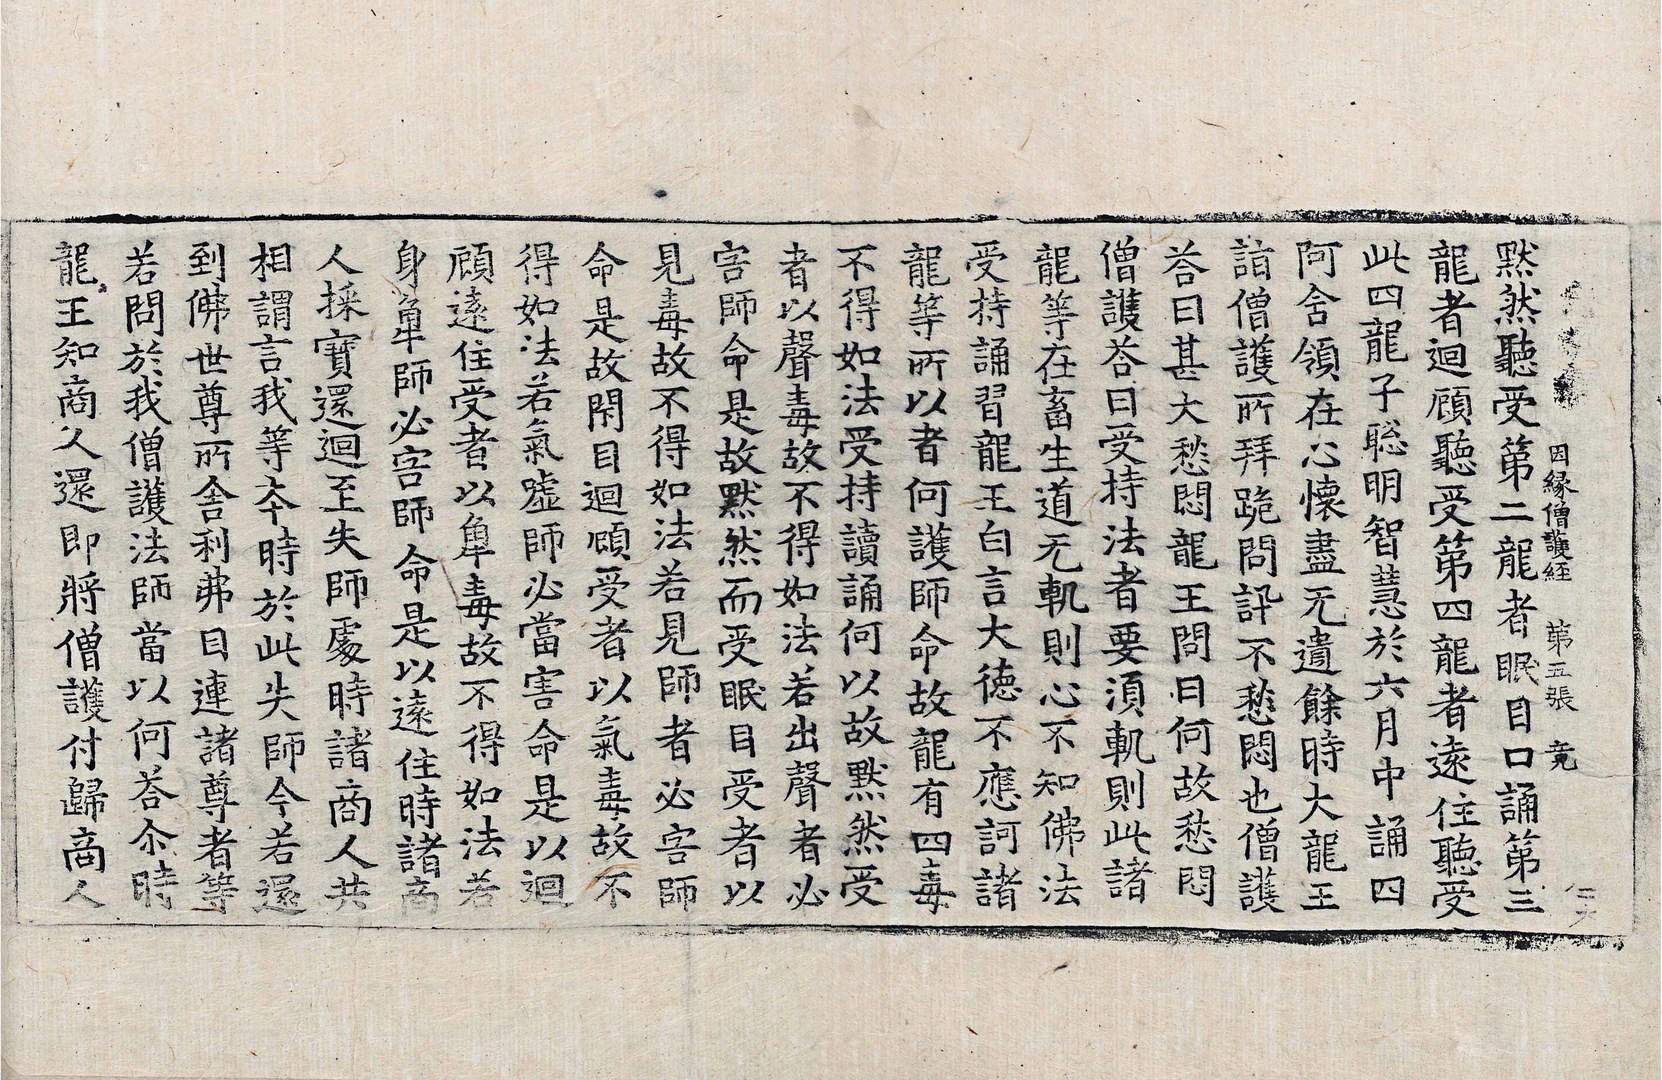 因緣僧護経 第五張 竟
默然聽受第二龍者眠目口誦第三
龍者迴顧聽受第四龍者遠住聽受
此四龍子聡明智慧於六月中誦四
阿含領在心懷盡无遺餘時大龍王
詣僧護所拜跪問訊不愁悶也僧護
荅曰甚大愁悶龍王問曰何故愁悶
僧護荅曰受持法者要須軌則此諸
龍等在畜生道无軌則心不知佛法
受持誦習龍王白言大德不應訶諸
龍等所以者何護師命故龍有四毒
不得如法受持讀誦何以故默然受
者以聲毒故不得如法若出聲者必
害師命是故默然而受眠目受者以
見毒故不得如法若見師者必害師
命是故閇目迴顧受者以氣毒故不
得如法若氣噓師必當害命是以迴
顧遠住受者以身毒故不得如法若
身觸師必害師命是以遠住時諸商
人採寶還迴至失師處時諸商人共
相謂言我等夲時於此失師今若還
到佛世尊所舍利弗目連諸尊者等
若問於我僧護法師當以何荅尒時
龍王知商人還即將僧護付歸商人